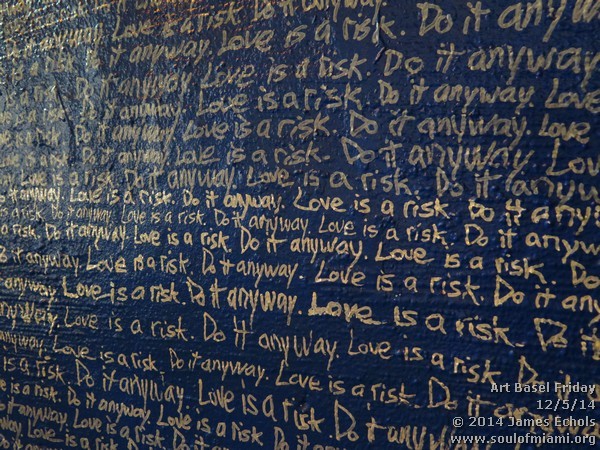 Do it anyway. Love is a risk. Do it anyway.
anyway. Love is a risk. Do it anyway.
is a risk. Do it anyway. Love is a risk. Do it anyway.
Do it anyway. Love is a risk. Do it anyway. Love
Love is a risk. Do it anyway. Love is a risk. Do it anyway. Love
Do it anyway. Love is a risk. Do it anyway. Love
Love is a risk. Do it anyway. Love is a risk. Do it anyway
it anyway. Love is a risk. Do it anyway. Love is a risk. Do it any
is a risk. Do it anyway. Love is a risk. Do it anyway. Love is a risk. Do it anyway
a risk. Do it anyway. Love is a risk. Do it anyway. Love is a risk. Do it anyway.
it anyway. Love is a risk. Do it anyway. Love is a risk. Do it
anyway. Love is a risk. Do it anyway. Love is a risk. Do it
anyway. Love is a risk. Do it anyway. Love is a risk. Do it
anyway. Love is a risk. Do it anyway. Love is a risk. Do
is a risk. Do it anyway. Love is a risk. Do it anyway.
Do it anyway. Love is a risk. Do it anyway.
Love is a risk. Do it anyway.
Art Basel Friday
12/5/14
© 2014 James Echols
www.soulofmiami.org